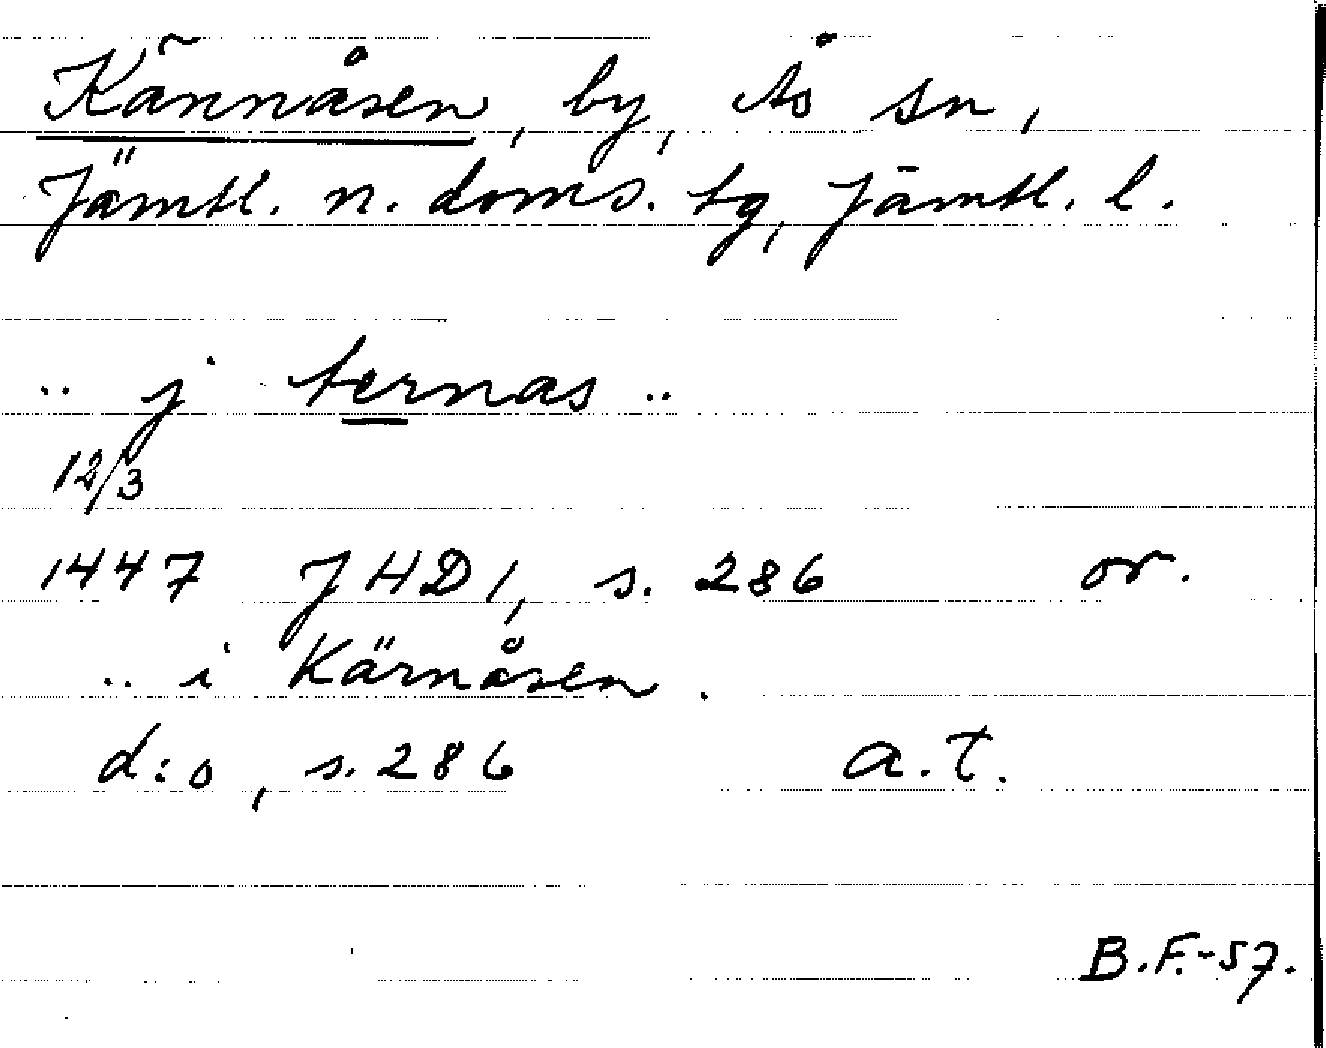 Kännåsen, by, Ås sn,
Jämtl. n. doms. tg, Jämtl. l.
.. j ternas ..
12/3
1447 JHD 1, s. 286 or.
.. i Kärnåsen .
d:o, s. 286 a.t.
B.F.-57.